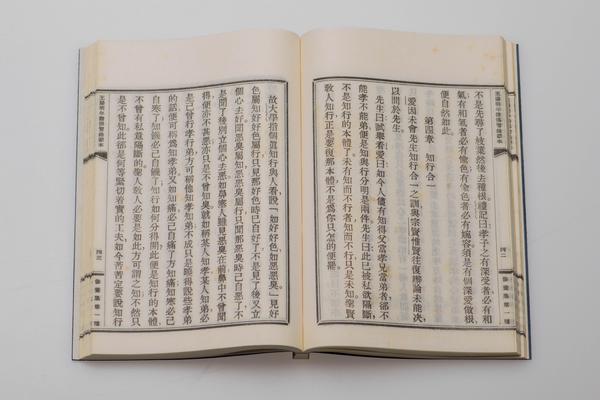 不是先尋了枝葉然後去種根禮記曰孝子之有深愛者必有和
氣有和氣者必有愉色有愉色者必有婉容須是有個深愛做根
便自然如此
第四章　知行合一
愛因未會先生知行合一之訓與宗賢惟賢往復辯論未能決
以問於先生
先生曰試舉看愛曰如今人儘有知得父當孝兄當弟者卻不
能孝不能弟便是知與行分明是兩件先生曰此已被私欲隔斷
不是知行的本體了未有知而不行者知而不行只是未知聖賢
教人知行正是要復那本體不是爲你只恁的便罷
四二
故大學指個眞知行與人看說「如好好色如惡惡臭」見好
色屬知好好色屬行只見那好色時已自好了不是見了後又立
個心去好聞惡臭屬知惡惡臭屬行只聞那惡臭時已自惡了不
是聞了後別立個心去惡如鼻塞人雖見惡臭在前鼻中不曾聞
得便亦不甚惡亦只是不曾知臭就如稱某人知孝某人知弟必
是其人已曾行孝行弟方可稱他知孝知弟不成只是曉得說些孝弟
的話便可稱爲知孝弟又如知痛必已自痛了方知痛知寒必已
自寒了知饑必已自饑了知行如何分得開此便是知行的本體
不曾有私意隔斷的聖人敎人必要是如此方可謂之知不然只
是不曾知此卻是何等緊切着實的工夫如今苦苦定要說知行
四三